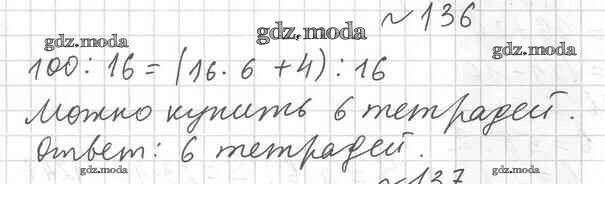 №136
gdz.moda gdz.moda gdz.moda
100 : 16 = (16 · 6 + 4) : 16
Можно купить 6 тетрадей.
Ответ: 6 тетрадей.
gdz.moda gdz.moda
№137